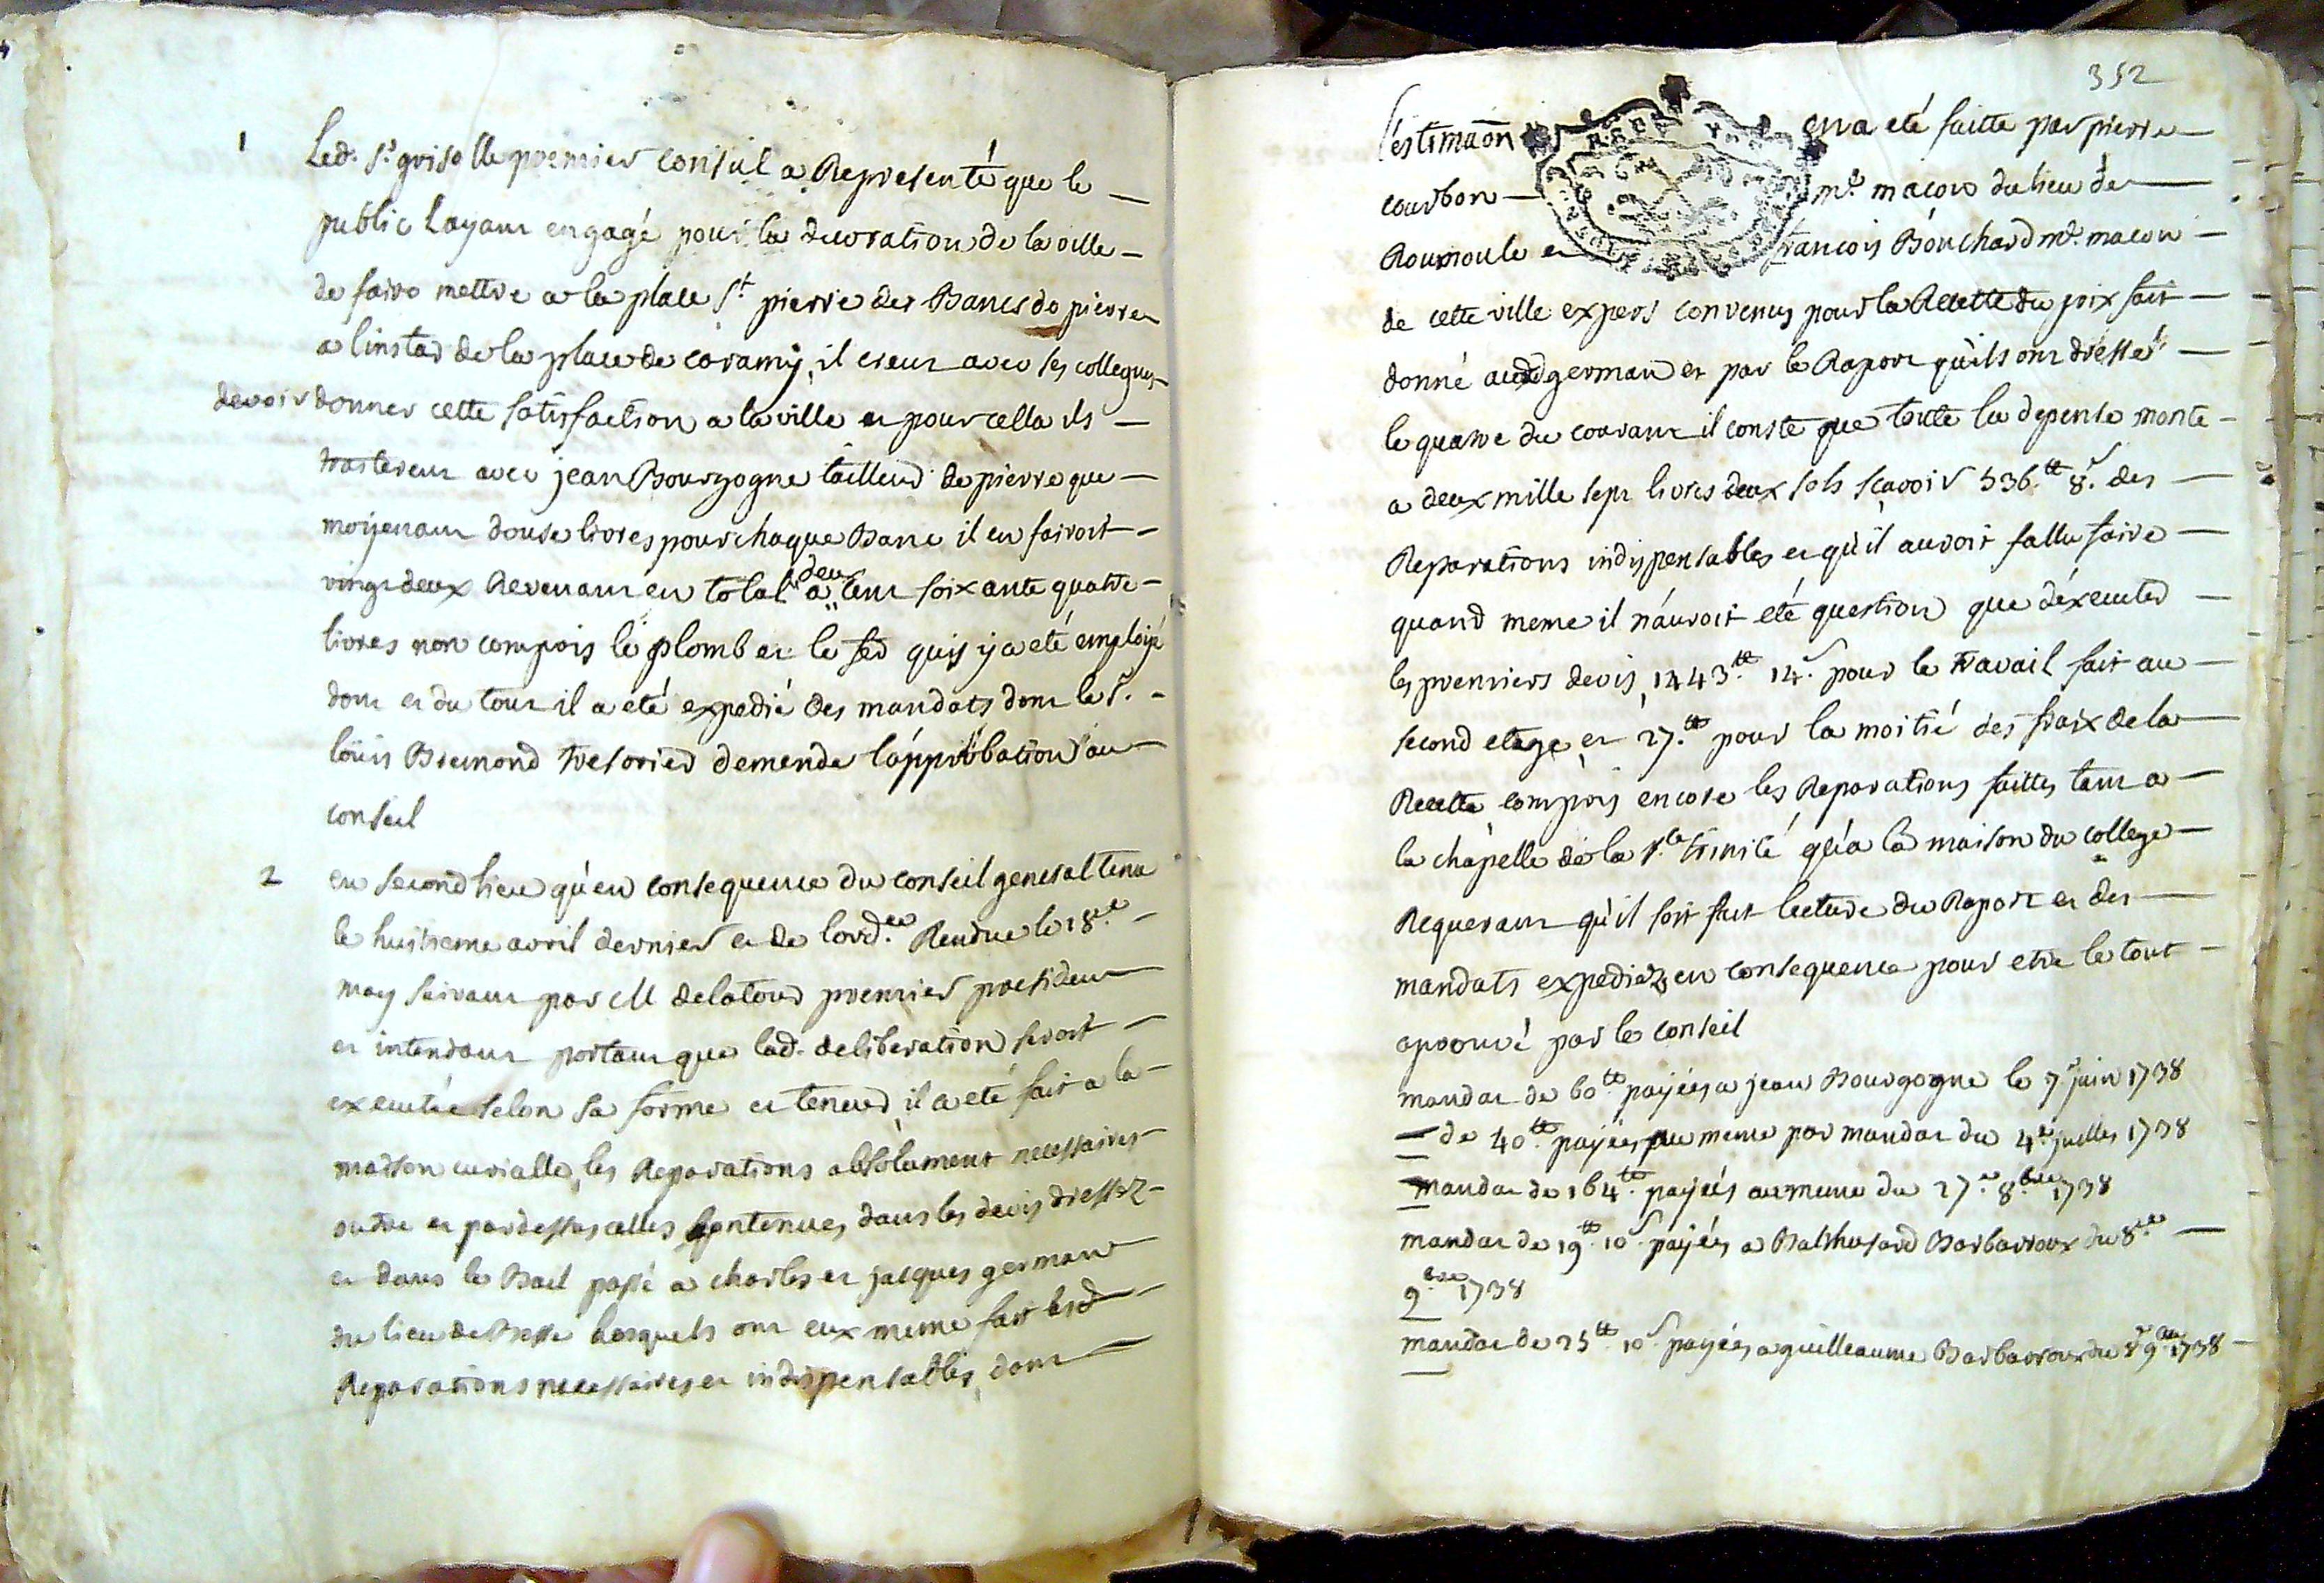 1 Led. Sr. grisolle premier consul a Representé que le
public layant engagé pour la decoration de la ville
de faire mettre a la place St pierre des Bancs de pierre
a linstar de la place de caramy, il creut avec ses collegues
devoir donner cette satisfaction a la ville et pour cella ils
traiterent avec jean Bourgogne tailleur de pierre que
moyenant douse livres pour chaque Banc il en fairoit
vingt deux Revenant en total a deux cent soixante quatre
livres non compris le plomb et le fer quis y a eté emploiyé
dont et du tout il a eté expedié des mandats dont le Sr.
loüis Bremond tresorier demende l'approbation au
conseil
2 en second lieu qu'en consequence du conseil general tenu
le huitieme avril dernier et de lord.ce Rendue le 18.e
may suivant par M delatour premier president
et intendant portant que lad. deliberation seroit
executée selon sa forme et teneur il a eté fait a la
maison curialle, les Reparations absolument necessaires
outre et pardessus celles contenues dans les devis dressez
et dans le Bail passé a charles et jacques german
du lieu de Besse lesquels ont eux meme fait lesd
Reparations necessaires et indispensables, dont
352
l'estimaõn en a eté faitte par pierre
courbon me. macon du lieu de
Roumoule et francois Bouchard me. macon
de cette ville expers convenus pour la Recette du prix fait
donné auxd german et par le Raport qu'ils ont dressé
le quatre du courant il conste que toute la depense monte
a deux mille sept livres deux sols scavoir 536.tt 8.s des
Reparations indispensables et qu'il auroit fallu faire
quand meme il n'auroit eté question que d'executer
les premiers devis, 1443.tt 14.s pour le travail fait au
second etage, et 27.tt pour la moitié des fraix de la
Recette compris encore les Reparations faittes tant a
la chapelle de la Ste trinité qu'a la maison du college
Requerant qu'il soit fait lecture du Raport et des
mandats expediez en consequence pour etre le tout
aprouvé par le conseil
mandat de 60.tt payées a jean Bourgogne le 7.e juin 1738
de 40.tt payées au meme par mandat du 4.e juillet 1738
mandat de 164.tt payées au meme du 27.e 8.bre 1738
mandat de 19.tt 10.s payées a Balthasard Barbarroux du 8.e
9.bre 1738
mandat de 25.tt 10.s payées a guilleaume Barbarroux du 8.e 9.bre 1738